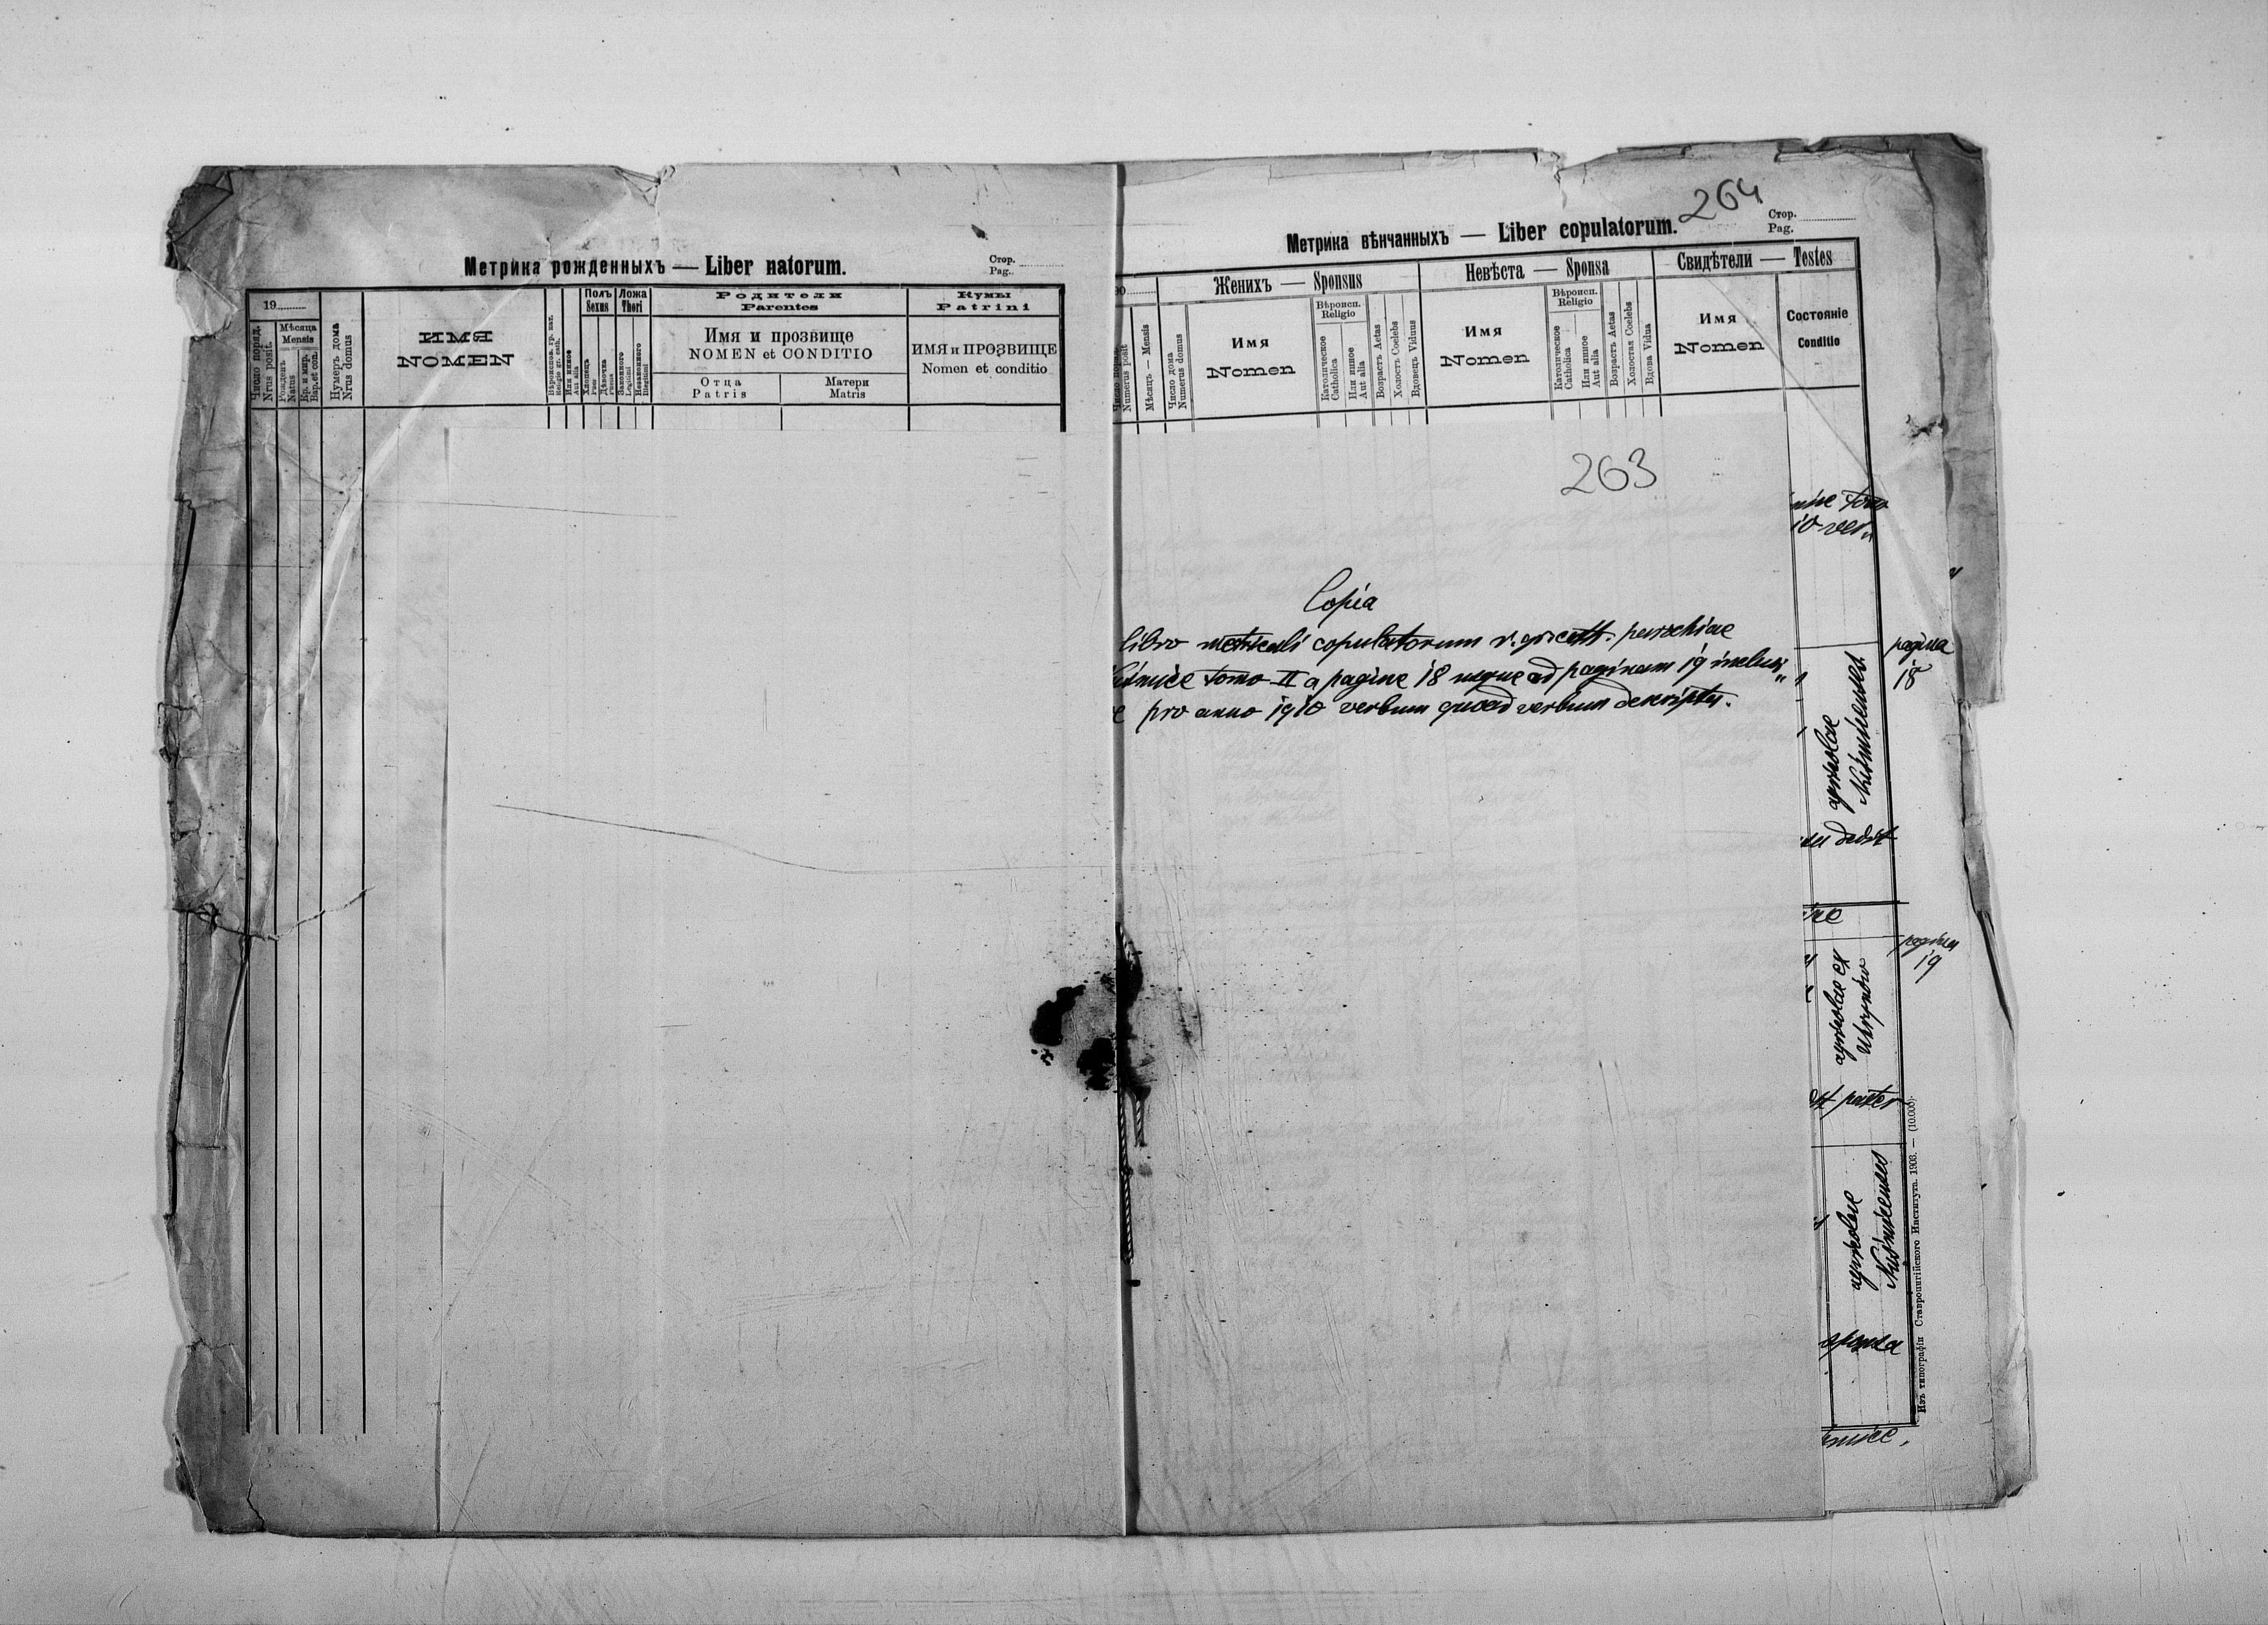 Метрика рожденныхъ — Liber natorum.
Стор.
Pag.
19
Число поряд.
Nrus posit.
Мѣсяца
Mensis
Рожденъ
Natus
Кр. и мир.
Bap. et con.
Нумеръ дома
Nrus domus
ИМЯ
NOMEN
Или инное
Aut alia
Полъ
Sexus
Хлопецъ
Puer
Дѣвочка
Ложа
Thori
Законного
Legitimi
Незаконного
Illegitimi
Родители
Parentes
Имя и прозвище
NOMEN et CONDITIO
Отца
Patris
Матери
Matris
Кумы
Patrini
ИМЯ и ПРОЗВИЩЕ
Nomen et conditio
264
Метрика вѣнчанныхъ — Liber copulatorum.
Стор.
Pag.
Женихъ — Sponsus
Невѣста — Sponsa
Свидѣтели — Testes
Numerus posit
Мѣсяцъ — Mensis
Число дома
Numerus domus
Имя
Nomen
Вѣроисп.
Religio
Католическое
Catholica
Или инное
Aut alia
Возрастъ Aetas
Холостъ Coelebs
Вдовецъ Viduus
Имя
Nomen
Вѣроисп.
Religio
Католическое
Catholica
Или инное
Aut alia
Возрастъ Aetas
Холостая Coelebs
Вдова Vidua
Имя
Nomen
Состояніе
Conditio
263
Copia
libro metricali copulatorum r. gr. cath. parochiae
tomo II a pagine 18 usque ad paginam 19 inclusi„
pro anno 1910 verbum quoad verbum descripta.
io ver„
pagina
18
agricolae
dedit
pagina
19
agricolae ex
Uhrynów
pater
agricolae
sponsa
Изъ типографіи Ставропигійского Института. 1903. — (10.000).